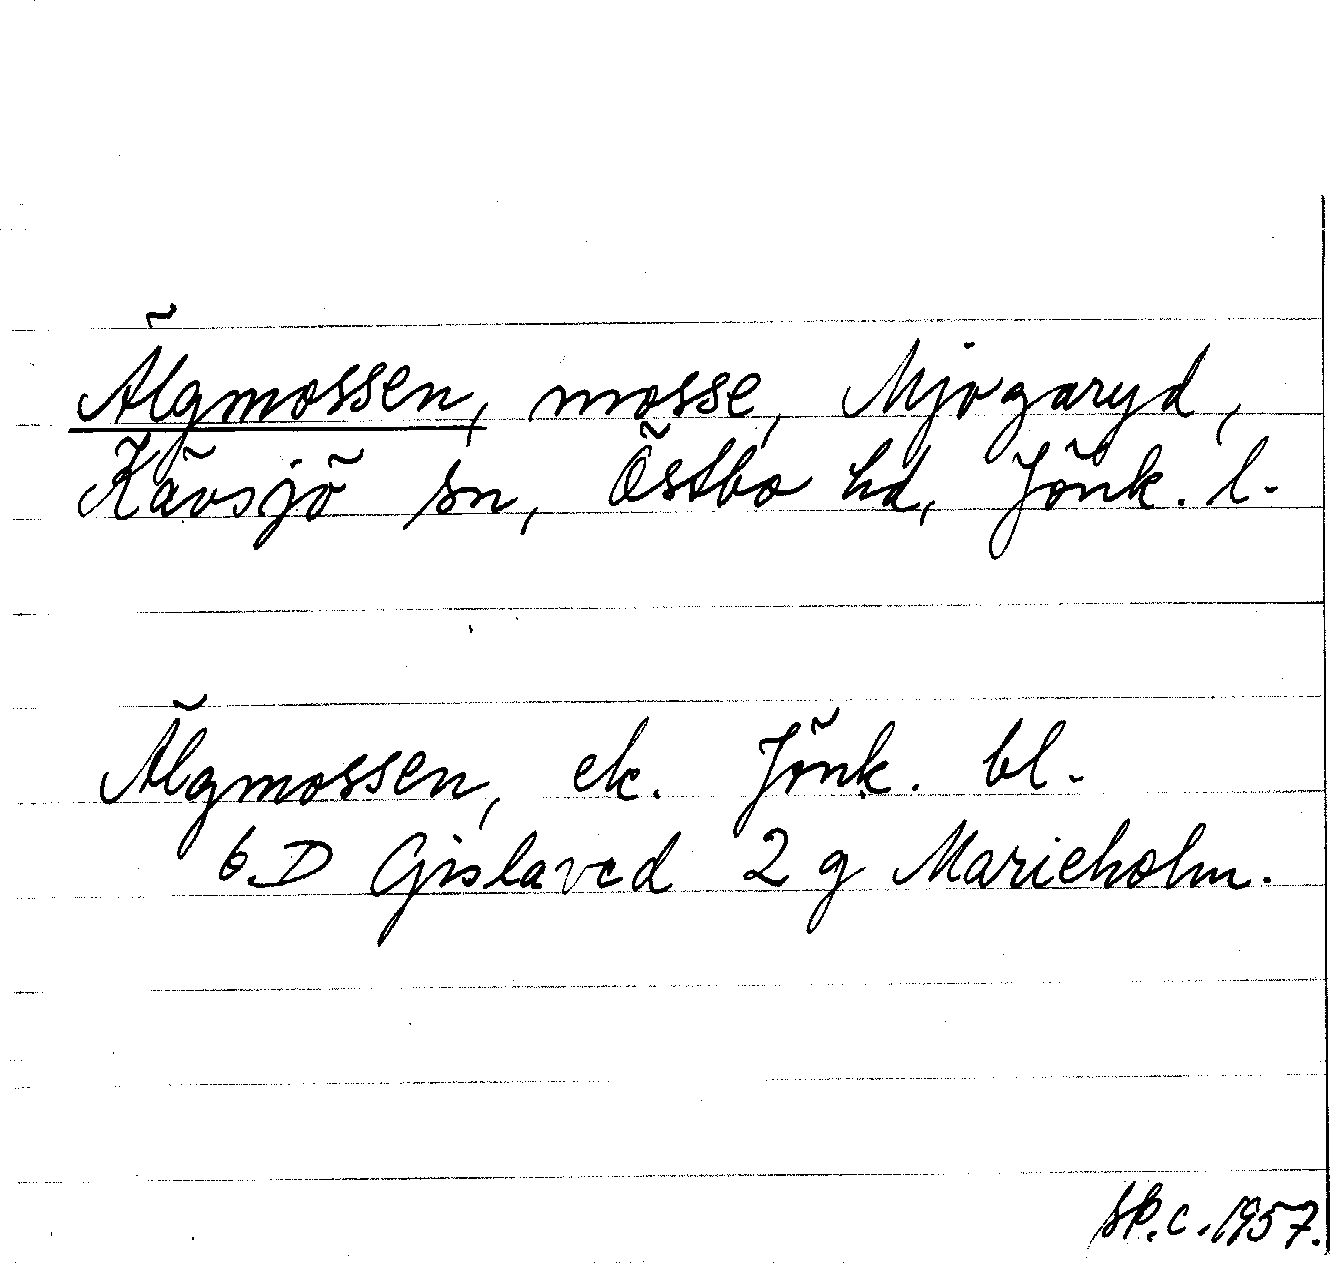 Älgmossen, mosse, Mjogaryd,
Kävsjö sn, Östbo hd, Jönk. l.
Älgmossen, ek. Jönk. bl.
6 D Gislaved 2 g Marieholm.
SP.c.1957.